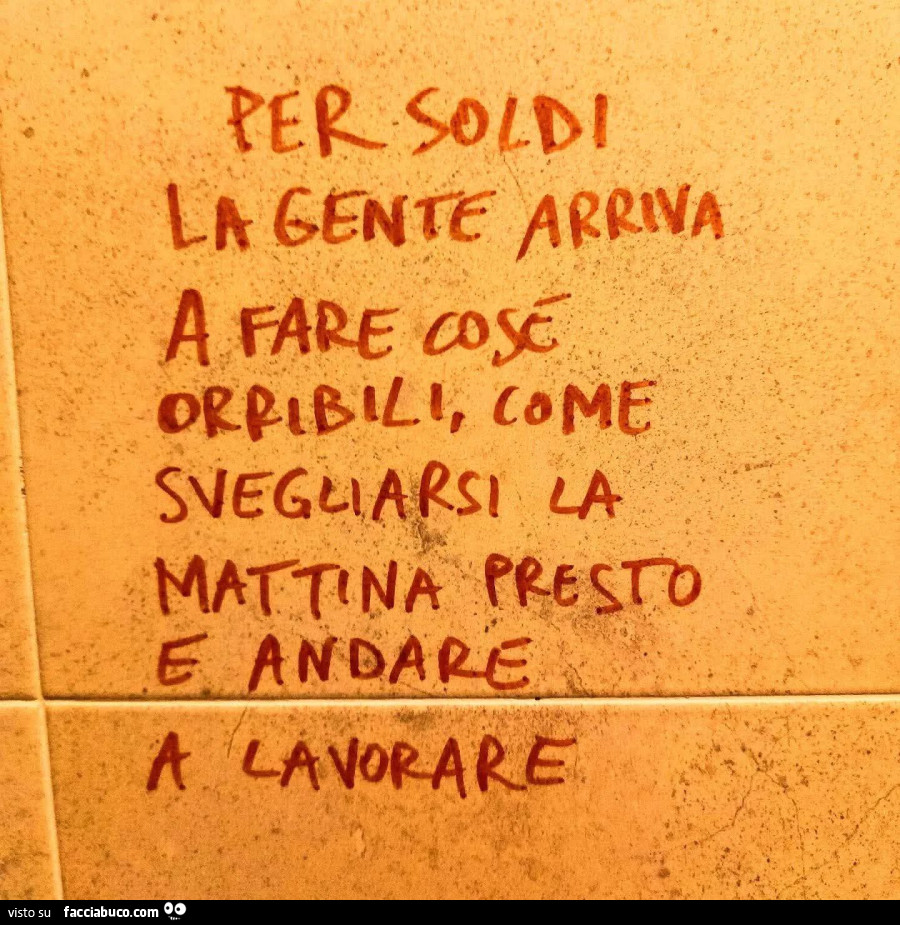 PER SOLDI
LA GENTE ARRIVA
A FARE COSÉ
ORRIBILI, COME
SVEGLIARSI LA
MATTINA PRESTO
E ANDARE
A LAVORARE
visto su facciabuco.com